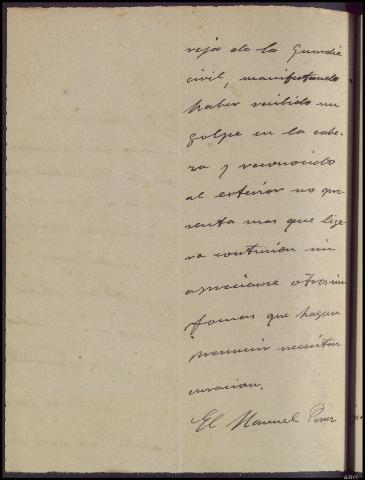 reja de la Guardia
civil, manifestando
haber recibido un
golpe en la cabe-
za y reconocido
al exterior no pre
senta mas que lige
ra contusion sin
apreciarse otros sin
tomas que hagan
presumir necesitar
curacion.
El Manuel Perez